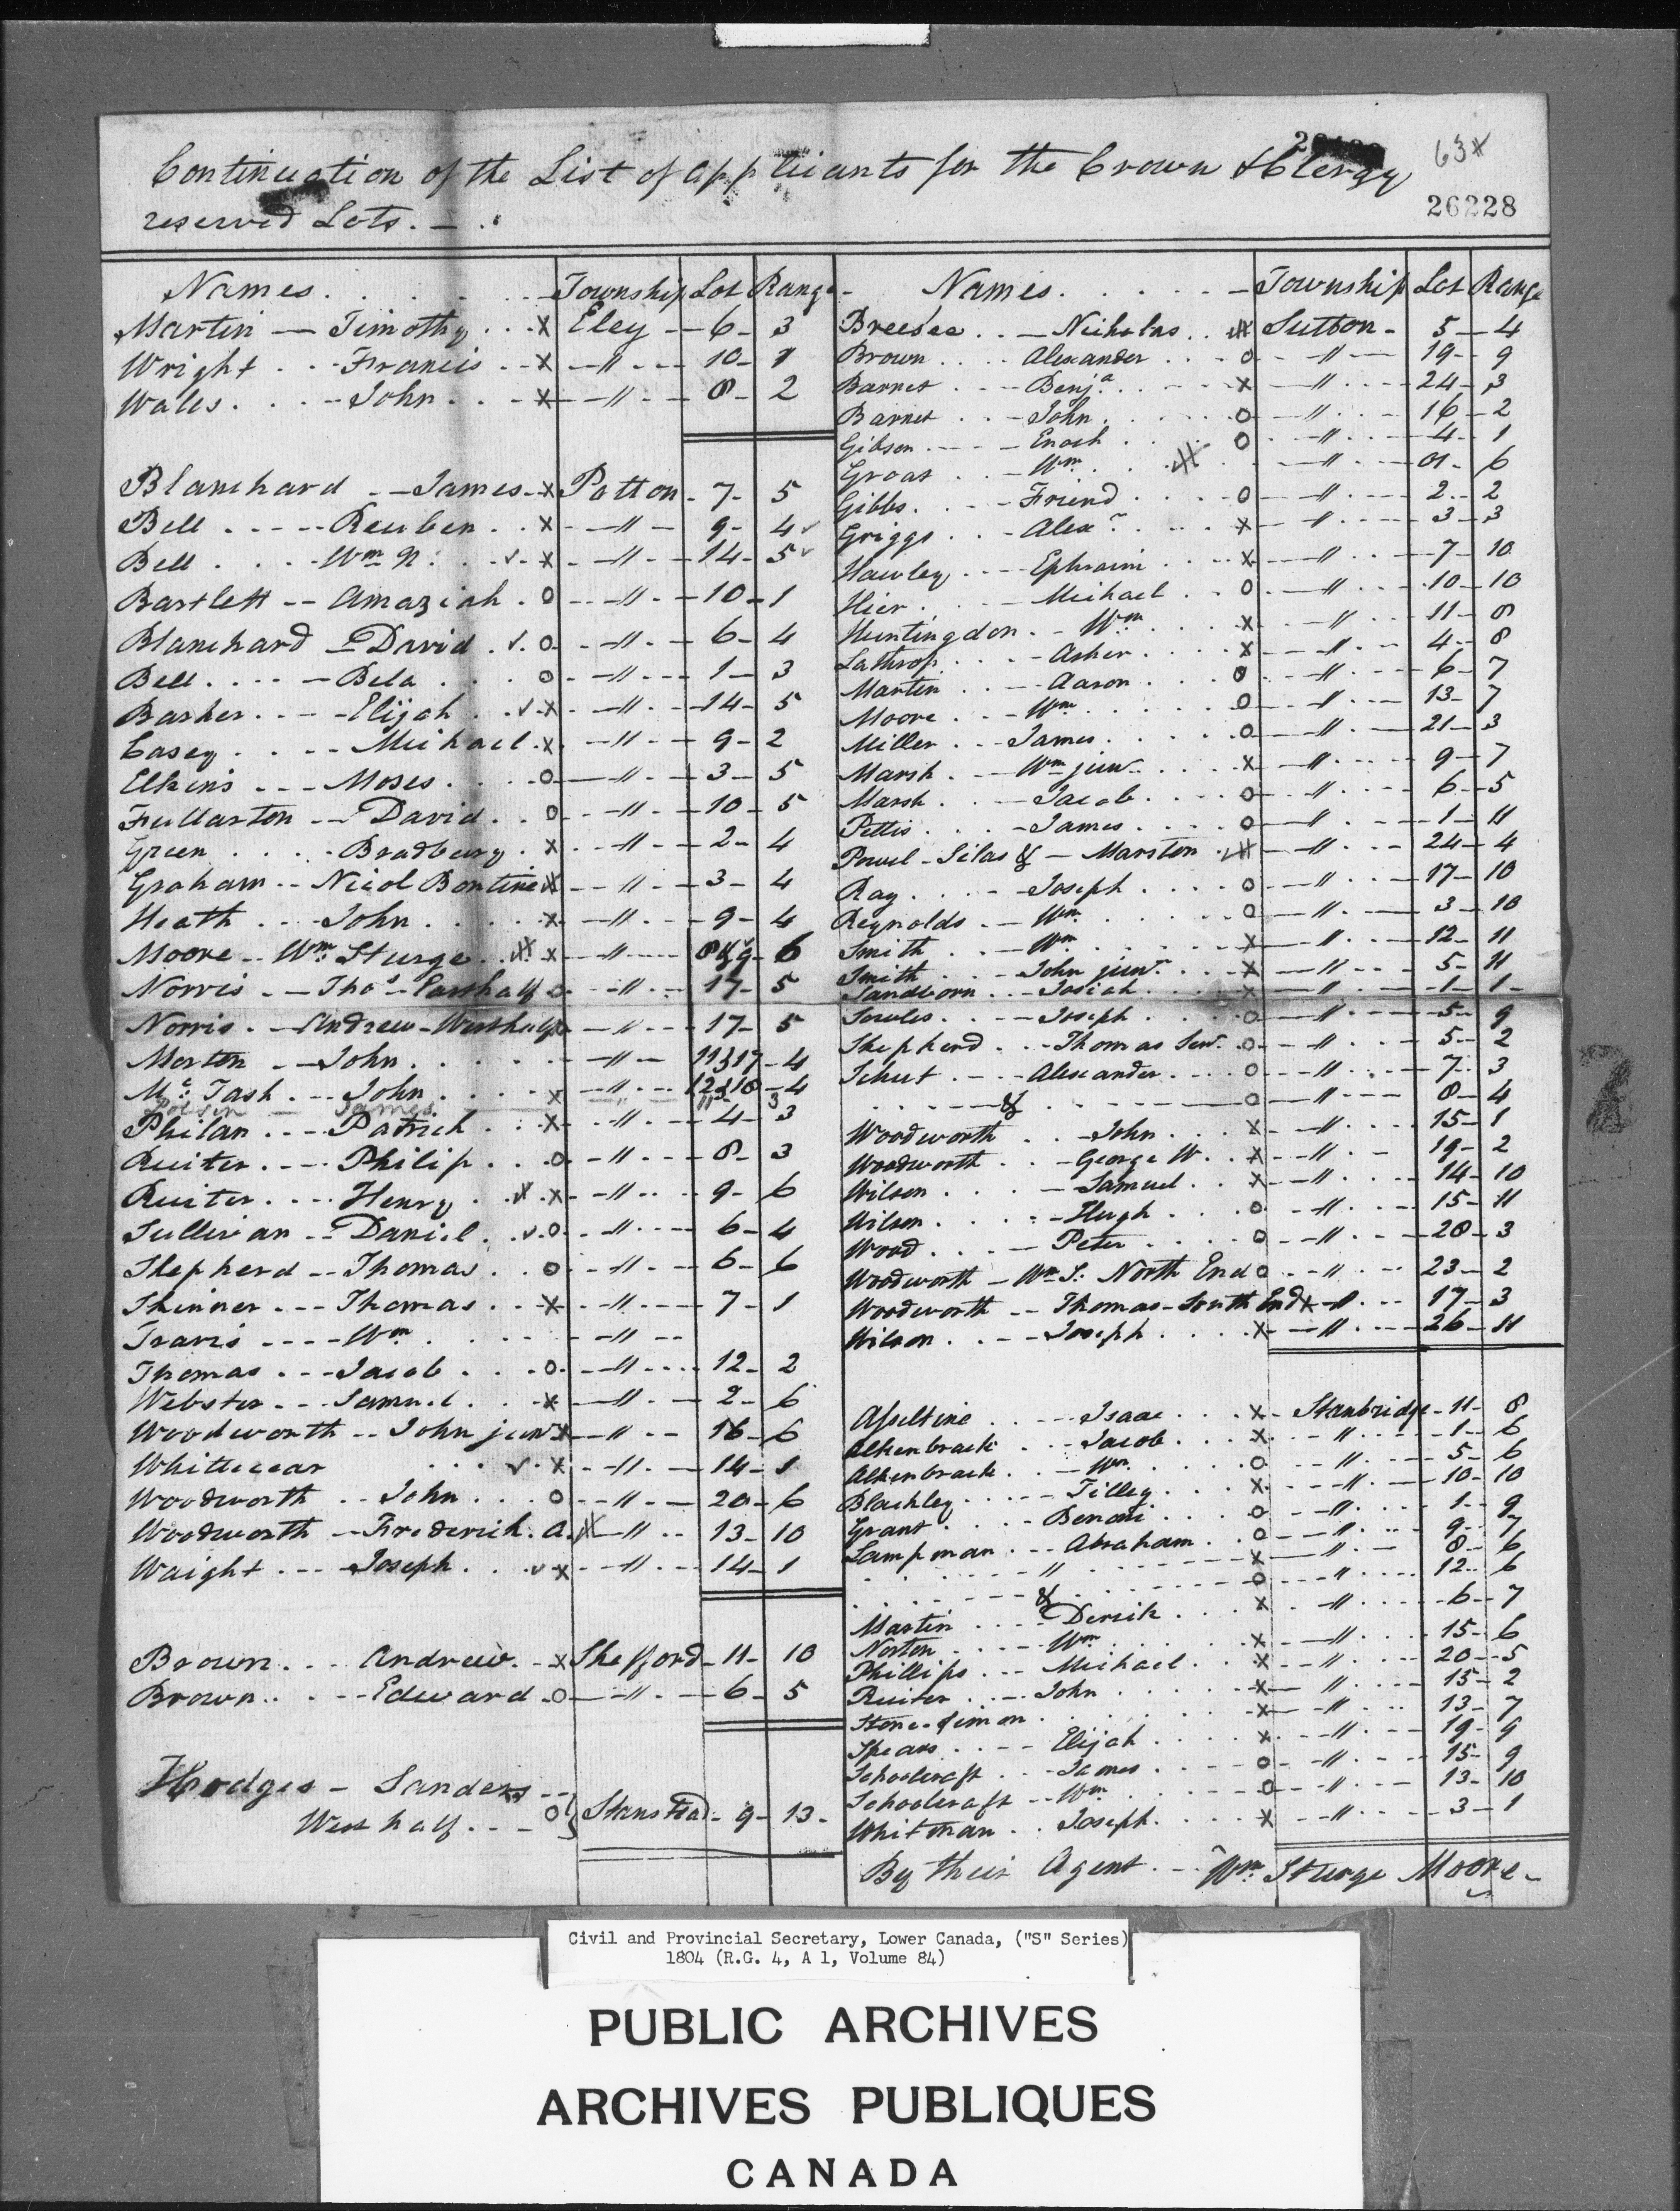 Continuation of the List of applicants for the Crown & Clergy
reserved Lots. —
63 x
26228
Names. Township Lot Range
Martin — Timothy x Eley 6 3
Wright Francis x " 10 1
Wales John x " 8 2
Blanchard James x Potton 7 5
Bell Reuben x " 9 4 ✓
Bell Wm N: ✓ x " 14 5 ✓
Bartlett Amaziah o " 10 1
Blanchard David ✓ o " 6 4
Bell Bela o " 1 3
Barker Elijah ✓ x " 14 5
Casey Michael x " 9 2
Elkins Moses o " 3 5
Fullarton David o " 10 5
Green Bradbury x " 2 4
Graham Nicol Bontine " 3 4
Heath John x " 9 4
Moore Wm Sturge x " 8 & 9 6
Norris Thos Easthalf o " 17 5
Norris Andrew Westhalf o " 17 5
Morton John " 11 & 17 4
Mc Tash John x " 12 & 18 4
James " 11 3
Philan Patrick x " 4 3
Ruiter Philip o " 8 3
Ruiter Henry x " 9 6
Sullivan Daniel ✓ o " 6 4
Shepherd Thomas o " 6 6
Skinner Thomas x " 7 1
Travis Wm "
Thomas Jacob o " 12 2
Webster Samuel x " 2 6
Woodworth John junr x " 16 6
Whittecar ✓ x " 14 1
Woodworth John o " 20 6
Woodworth Frederick. A. " 13 10
Waight Joseph ✓ x " 14 1
Brown Andrew x Shefford 11 10
Brown Edward o " 6 5
Hodges — Sanders
West half o } Stanstead 9 13
Names. Township Lot Range
Breesee Nicholas Sutton 5 4
Brown Alexander o " 19 9
Barnet Benja x " 24 3
Barnet John o " 16 2
Gibson Enoch o " 4 1
Groat Wm " 6
Gibbs Friend o " 2 2
Griggs Alexr x " 3 3
Hawley Ephraim x " 7 10
Hier Michael o " 10 10
Huntingdon Wm x " 11 8
Lathrop Asher x " 4 8
Martin Aaron o " 6 7
Moore Wm o " 13 7
Miller James o " 21 3
Marsh Wm junr x " 9 7
Marsh Jacob o " 6 5
Pettis James o " 1 11
Powel Silas & Marston " 24 4
Ray Joseph o " 17 10
Reynolds Wm o " 3 10
Smith Wm x " 12 11
Smith John junr x " 5 11
Sandborn Josiah x " 1 1
Sowles Joseph o " 5 9
Shepherd Thomas Senr o " 5 2
Schut Alexander o " 7 3
& o " 8 4
Woodworth John x " 15 1
Woodworth George W. x " 19 2
Wilson Samuel x " 14 10
Wilson Hugh o " 15 11
Wood Peter o " 28 3
Woodworth Wm S: North End o " 23 2
Woodworth Thomas South End x " 17 3
Wilson Joseph x " 26 11
Asseltine Isaac x Stanbridge 11 8
Alkenbrack Jacob x " 1 6
Alkenbrack Wm o " 5 6
Blackley Tilley x " 10 10
Grant Benoni o " 1 9
Lampman Abraham o " 9 7
" x " 8 6
& o " 12 6
Martin Derrick x " 6 7
Norton Wm x " 15 6
Phillips Michael x " 20 5
Ruiter John x " 15 2
Stone Simon x " 13 7
Spears Elijah x " 19 9
Schoolcraft James o " 15 9
Schoolcraft Wm o " 13 10
Whitman Joseph x " 3 1
By their Agent Wm Sturge Moore
Civil and Provincial Secretary, Lower Canada, ("S" Series)
1804 (R.G. 4, A 1, Volume 84)
PUBLIC ARCHIVES
ARCHIVES PUBLIQUES
CANADA